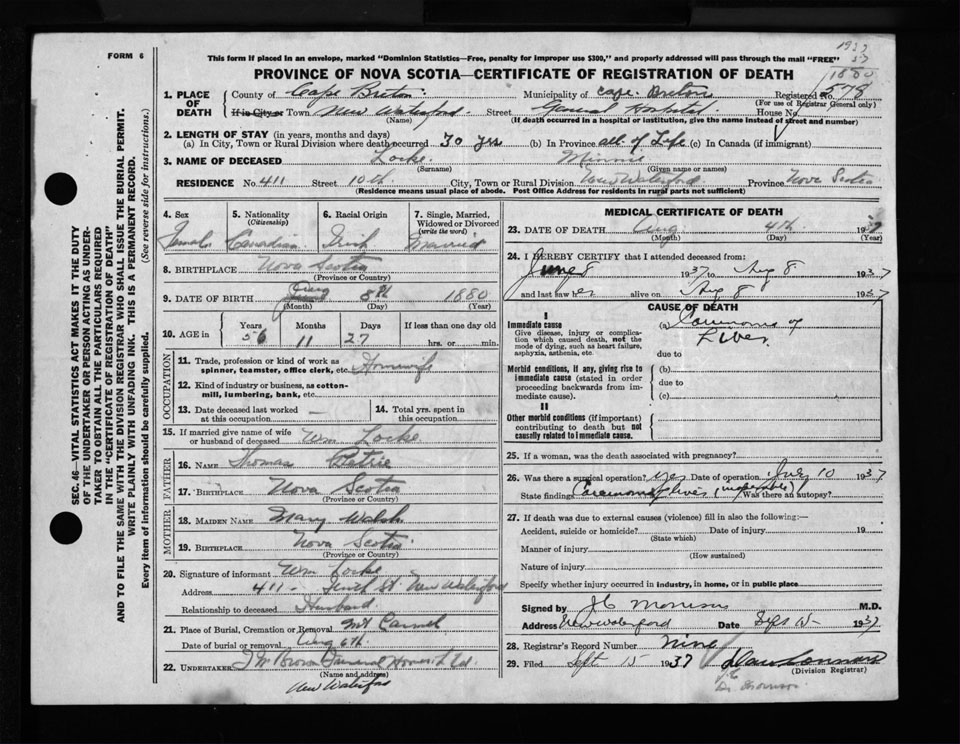 FORM 6
This form if placed in an envelope, marked "Dominion Statistics—Free, penalty for improper use $300," and properly addressed will pass through the mail "FREE"
1937
1880
PROVINCE OF NOVA SCOTIA—CERTIFICATE OF REGISTRATION OF DEATH
SEC. 46—VITAL STATISTICS ACT MAKES IT THE DUTY
OF THE UNDERTAKER OR PERSON ACTING AS UNDER-
TAKER TO OBTAIN ALL THE PARTICULARS REQUIRED
IN THE "CERTIFICATE OF REGISTRATION OF DEATH"
AND TO FILE THE SAME WITH THE DIVISION REGISTRAR WHO SHALL ISSUE THE BURIAL PERMIT.
WRITE PLAINLY WITH UNFADING INK. THIS IS A PERMANENT RECORD.
Every item of information should be carefully supplied. (See reverse side for instructions.)
1. PLACE OF DEATH County of Cape Breton Municipality of Cape Breton Registered No. 578
(For use of Registrar General only)
If in City or Town New Waterford Street General Hospital House No.
(Name) (If death occurred in a hospital or institution, give the name instead of street and number)
2. LENGTH OF STAY (in years, months and days)
(a) In City, Town or Rural Division where death occurred 30 yrs (b) In Province all of Life (c) In Canada (if immigrant)
3. NAME OF DECEASED Locke Minnie
(Surname) (Given name or names)
RESIDENCE No. 411 Street 10th City, Town or Rural Division New Waterford Province Nova Scotia
(Residence means usual place of abode. Post Office Address for residents in rural parts not sufficient)
4. Sex 5. Nationality (Citizenship) 6. Racial Origin 7. Single, Married, Widowed or Divorced (write the word)
Female Canadian Irish Married
8. BIRTHPLACE Nova Scotia
(Province or Country)
9. DATE OF BIRTH Aug 8th 1880
(Month) (Day) (Year)
10. AGE in Years Months Days If less than one day old
56 11 27 hrs. or min.
OCCUPATION
11. Trade, profession or kind of work as spinner, teamster, office clerk, etc. Housewife
12. Kind of industry or business, as cotton-mill, lumbering, bank, etc.
13. Date deceased last worked at this occupation — 14. Total yrs. spent in this occupation
15. If married give name of wife or husband of deceased Wm Locke
FATHER
16. NAME Thomas Petrie
17. BIRTHPLACE Nova Scotia
(Province or Country)
MOTHER
18. MAIDEN NAME Mary Walsh
19. BIRTHPLACE Nova Scotia
(Province or Country)
20. Signature of informant Wm Locke
Address 411 - Tenth St. New Waterford
Relationship to deceased Husband
21. Place of Burial, Cremation or Removal Mt Carmel
Date of burial or removal Aug 6th
22. UNDERTAKER Funeral Home Ltd.
(Name and address)
New Waterford
MEDICAL CERTIFICATE OF DEATH
23. DATE OF DEATH Aug 4th 1937
(Month) (Day) (Year)
24. I HEREBY CERTIFY that I attended deceased from:
June 8 1937 to Aug 8 1937
and last saw her alive on Aug 8 1937
CAUSE OF DEATH
I
Immediate cause
Give disease, injury or complication which caused death, not the mode of dying, such as heart failure, asphyxia, asthenia, etc.
(a) Carcinoma of
Liver
due to
Morbid conditions, if any, giving rise to immediate cause (stated in order proceeding backwards from immediate cause).
(b)
due to
(c)
II
Other morbid conditions (if important) contributing to death but not causally related to immediate cause.
25. If a woman, was the death associated with pregnancy?
26. Was there a surgical operation? yes Date of operation July 10 1937
State findings Carcinoma of liver (inoperable) Was there an autopsy?
27. If death was due to external causes (violence) fill in also the following:—
Accident, suicide or homicide? Date of injury 19
(State which)
Manner of injury
(How sustained)
Nature of injury
Specify whether injury occurred in industry, in home, or in public place
Signed by J C Morrison M.D.
Address New Waterford Date Sept 15 1937
28. Registrar's Record Number Nine
29. Filed Sept 15 1937
(Division Registrar)
Dr. Morrison